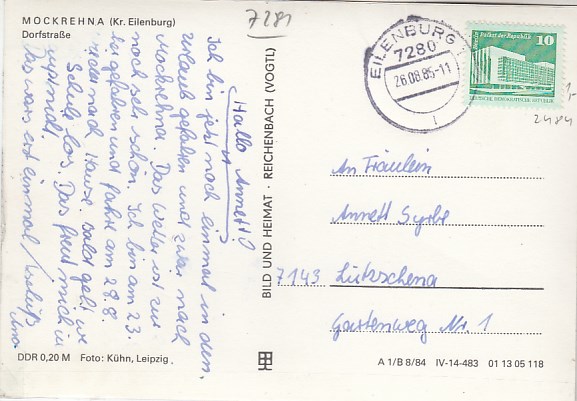 MOCKREHNA (Kr. Eilenburg)
Dorfstraße
7281
Hallo Annett!
Ich bin jetzt noch einmal in den
Urlaub gefahren und zwar nach
Mockrehna. Das Wetter ist zur
noch sehr schön. Ich bin am 23.
hin gefahren und fahre am 28.8.
wieder nach Hause. Bald geht
Schule los. Das freut mich
Das wars erst einmal
DDR 0,20 M Foto: Kühn, Leipzig.
BILD UND HEIMAT · REICHENBACH (VOGTL)
EILENBURG 1
7280
26.08.85-11
Palast der Republik
10
DEUTSCHE DEMOKRATISCHE REPUBLIK
2484
An Fräulein
Annett Syrbe
7143 Lützschena
Gartenweg Nr. 1
A 1/B 8/84 IV-14-483 01 13 05 118